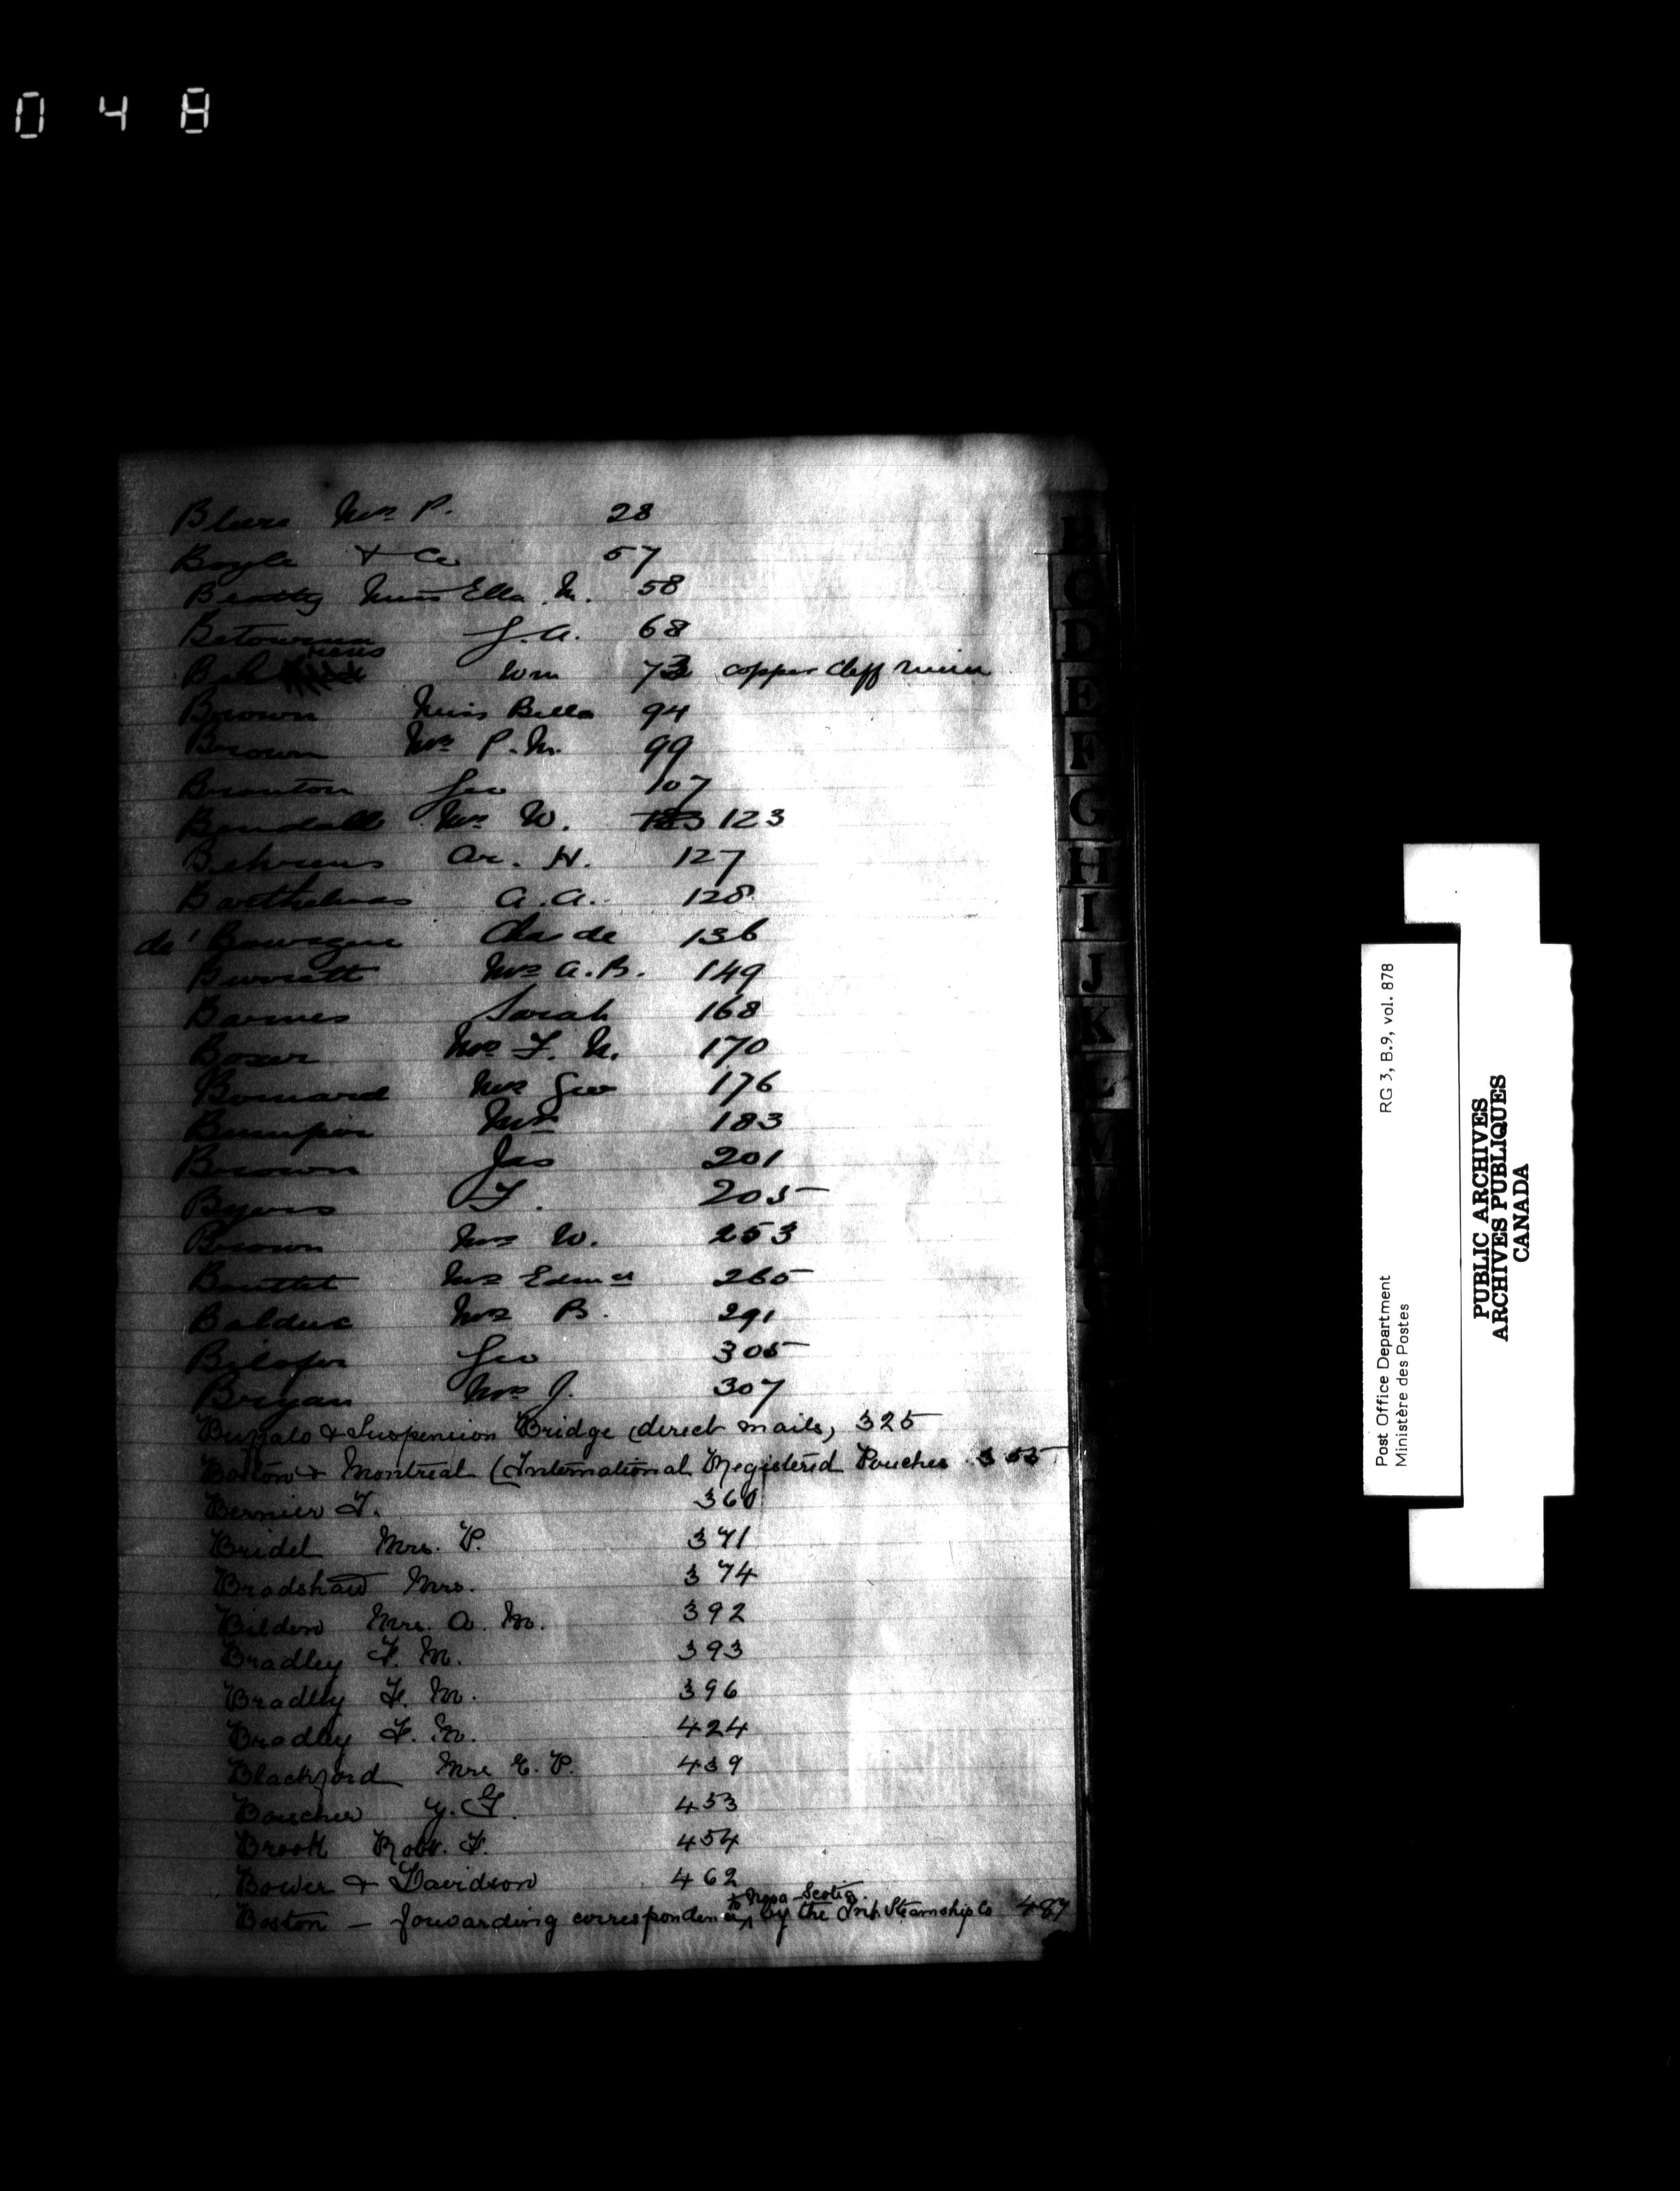 048
Blure Mrs P. 28
Boyle & Co 57
Beatty Miss Ella M. 58
Betournn J. A. 68
Wm 73 copper cliff
Brown Miss Bella 94
Brown Mrs P. M. 99
Branton Geo 107
Bendall Mrs W. 123
Behrens Ar. H. 127
Barthelmas A. A. 128
de' Chas de 136
Burrett Mrs A. B. 149
Barnes Sarah 168
Boxer Mrs F. N. 170
Bernard Mrs Geo 176
Mrs 183
Brown Jas 201
Byers F. 205
Brown Mrs W. 253
Mrs Edmd 265
Bolduc Mrs B. 291
Geo 305
Bryan Mrs J. 307
Buffalo & Suspension Bridge (direct mails) 325
Boston & Montreal (International Registered Pouches 355
Bernier F. 360
Bridel Mrs. P. 371
Bradshaw Mrs. 374
Bilden Mrs. A. M. 392
Bradley F. M. 393
Bradley F. M. 396
Bradley F. M. 424
Blackford Mrs E. P. 439
Boucher Y. G. 453
Brook Robt. F. 454
Bower & Davidson 462
to Nova-Scotia.
Boston - forwarding correspondence by the Int. Steamship Co 487
C
D
E
F
G
H
I
J
K
Post Office Department RG 3, B.9, vol. 878
Ministère des Postes
PUBLIC ARCHIVES
ARCHIVES PUBLIQUES
CANADA